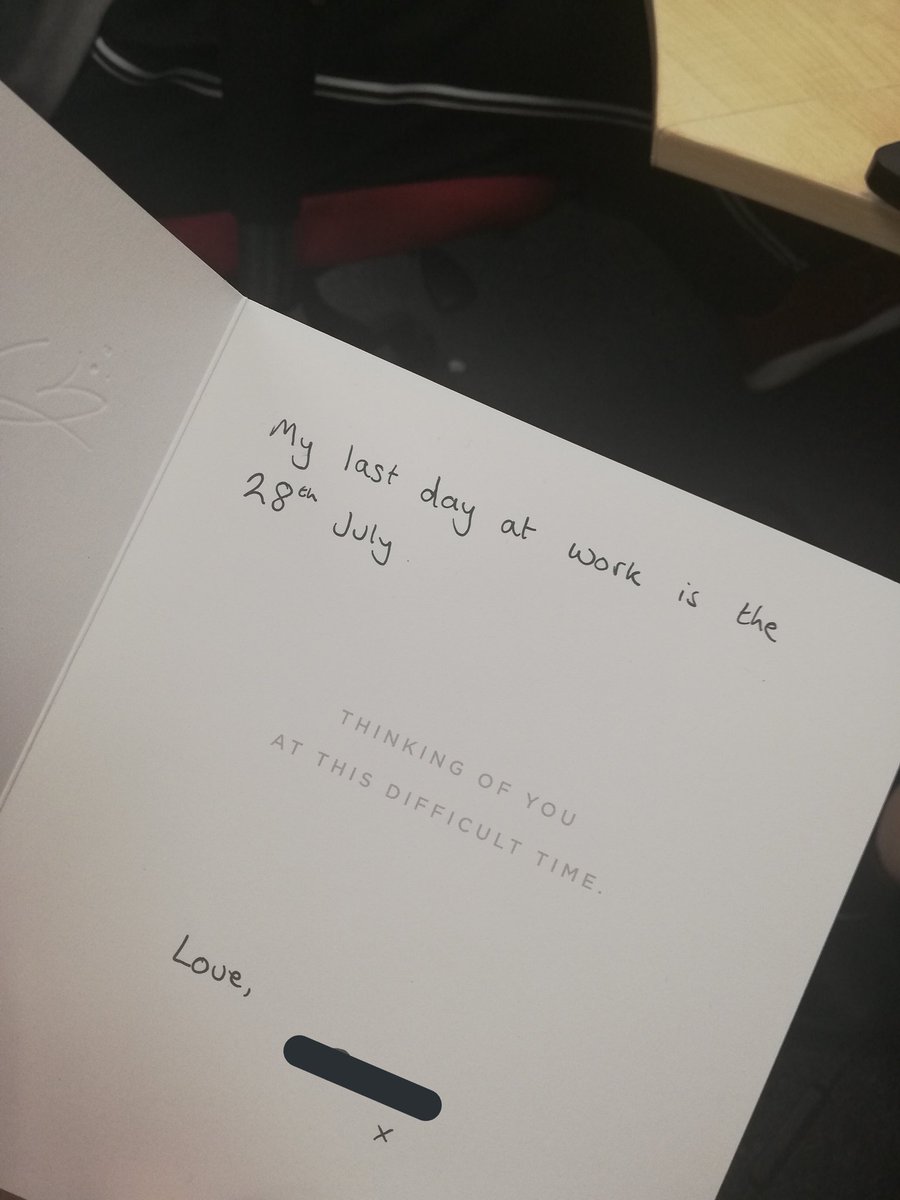 My last day at work is the
28th July.
THINKING OF YOU
AT THIS DIFFICULT TIME.
Love,
x